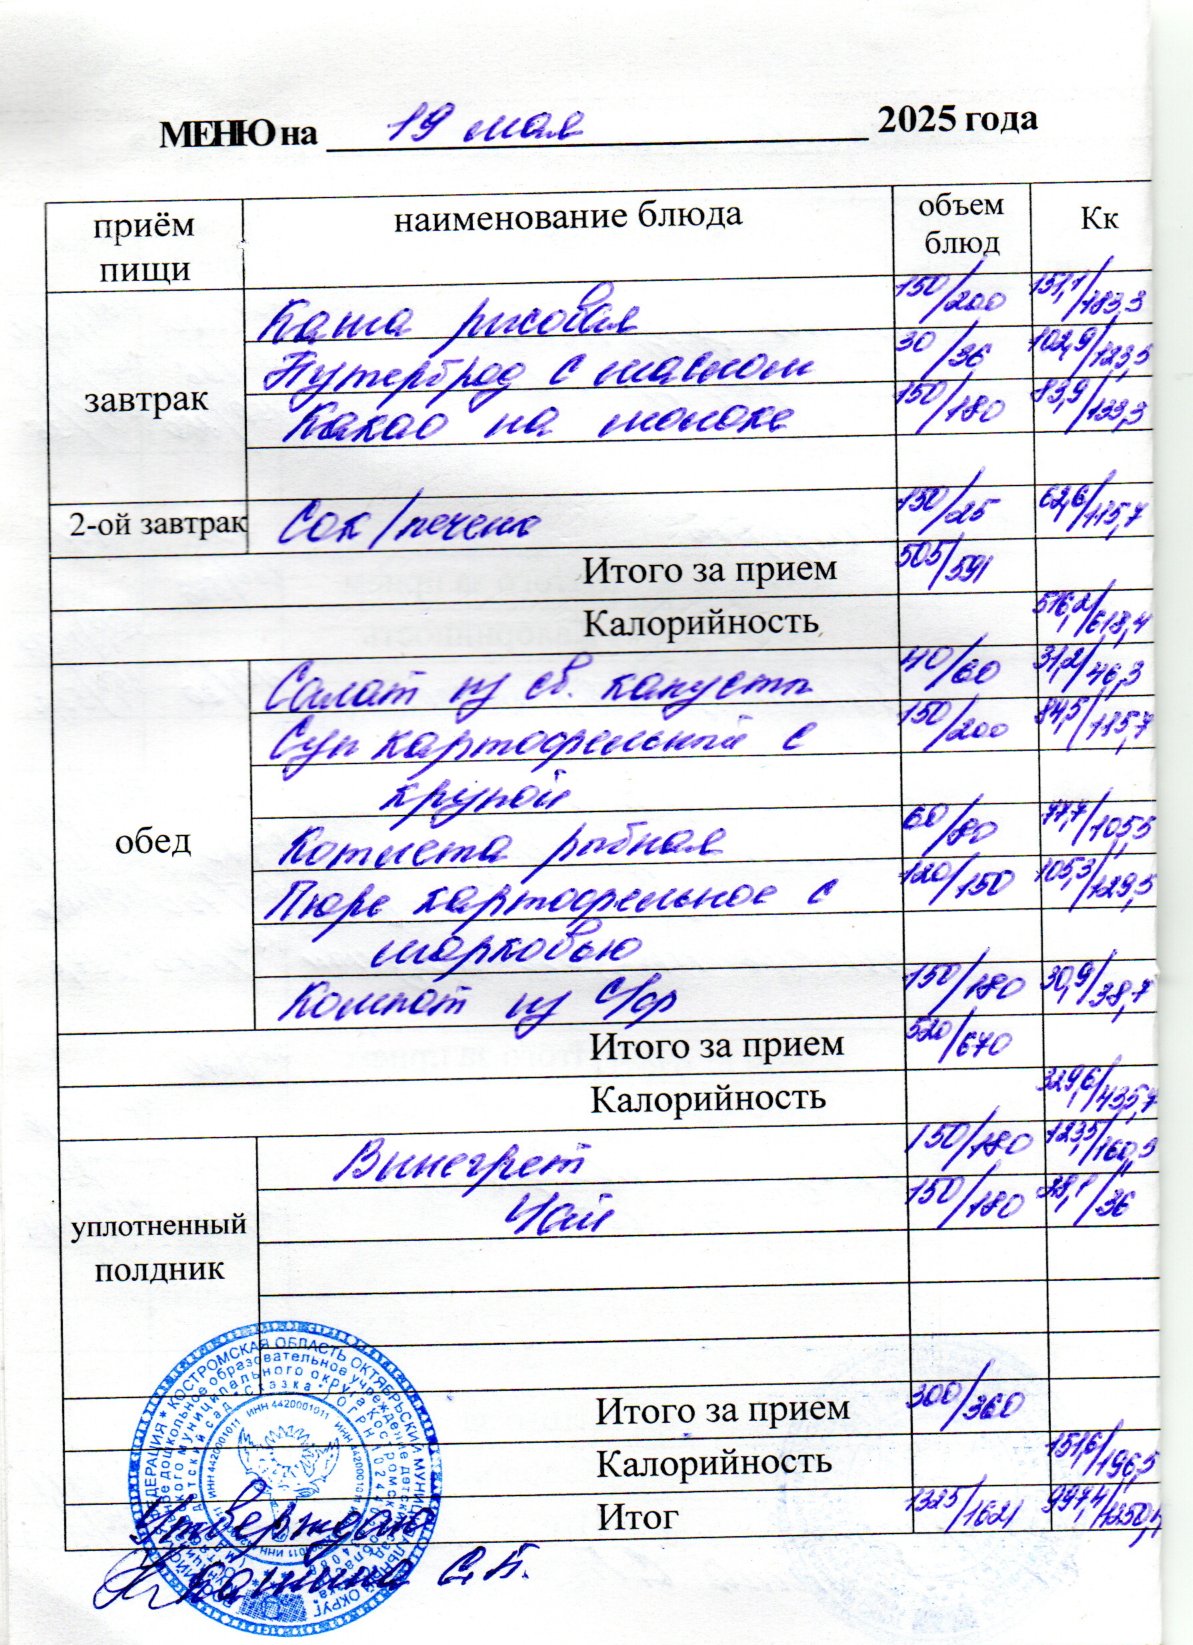 МЕНЮ на 19 мая 2025 года
приём пищи наименование блюда объем блюд Кк
завтрак
Каша рисовая 150/200 151,1/183,3
Бутерброд с маслом 30/36 102,9/123,5
Какао на молоке 150/180 83,9/133,3
2-ой завтрак Сок/печенье 150/25 62,6/115,7
Итого за прием 505/591
Калорийность 516,2/618,4
обед
Салат из св. капусты 40/60 31,2/46,3
Суп картофельный с 150/200 84,5/115,7
крупой
Котлета рыбная 60/80 77,7/105,5
Пюре картофельное с 120/150 105,3/129,5
морковью
Компот из с/фр 150/180 30,9/38,7
Итого за прием 520/670
Калорийность 329,6/435,7
уплотненный полдник
Винегрет 150/180 123,5/160,5
Чай 150/180 28,1/36
Итого за прием 300/360
Калорийность 151,6/196,5
Итог 1325/1621 997,4/1250,4
КОСТРОМСКАЯ ОБЛАСТЬ ОКТЯБРЬСКИЙ МУНИЦИПАЛЬНЫЙ ОКРУГ
дошкольное образовательное учреждение детский сад
муниципального округа Костромской области
детский сад Сказка
ИНН 4420001011 ИНН 4420001011
Утверждаю
С.П.